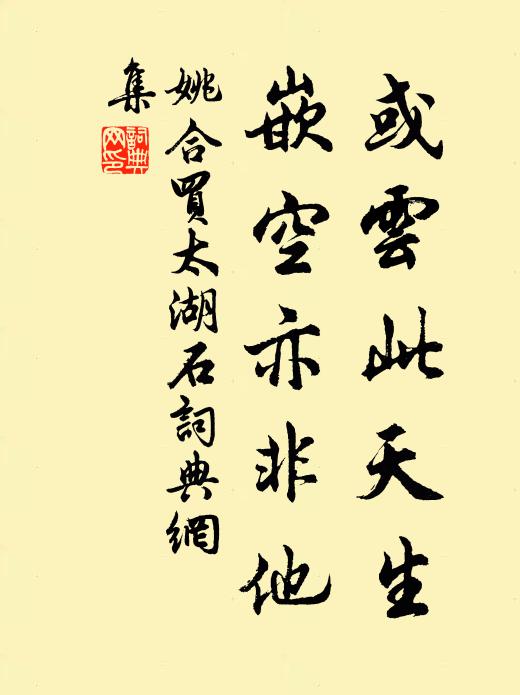 或雲此天生
嵌空亦非他
姚合買太湖石詞典網
集
詞典網印